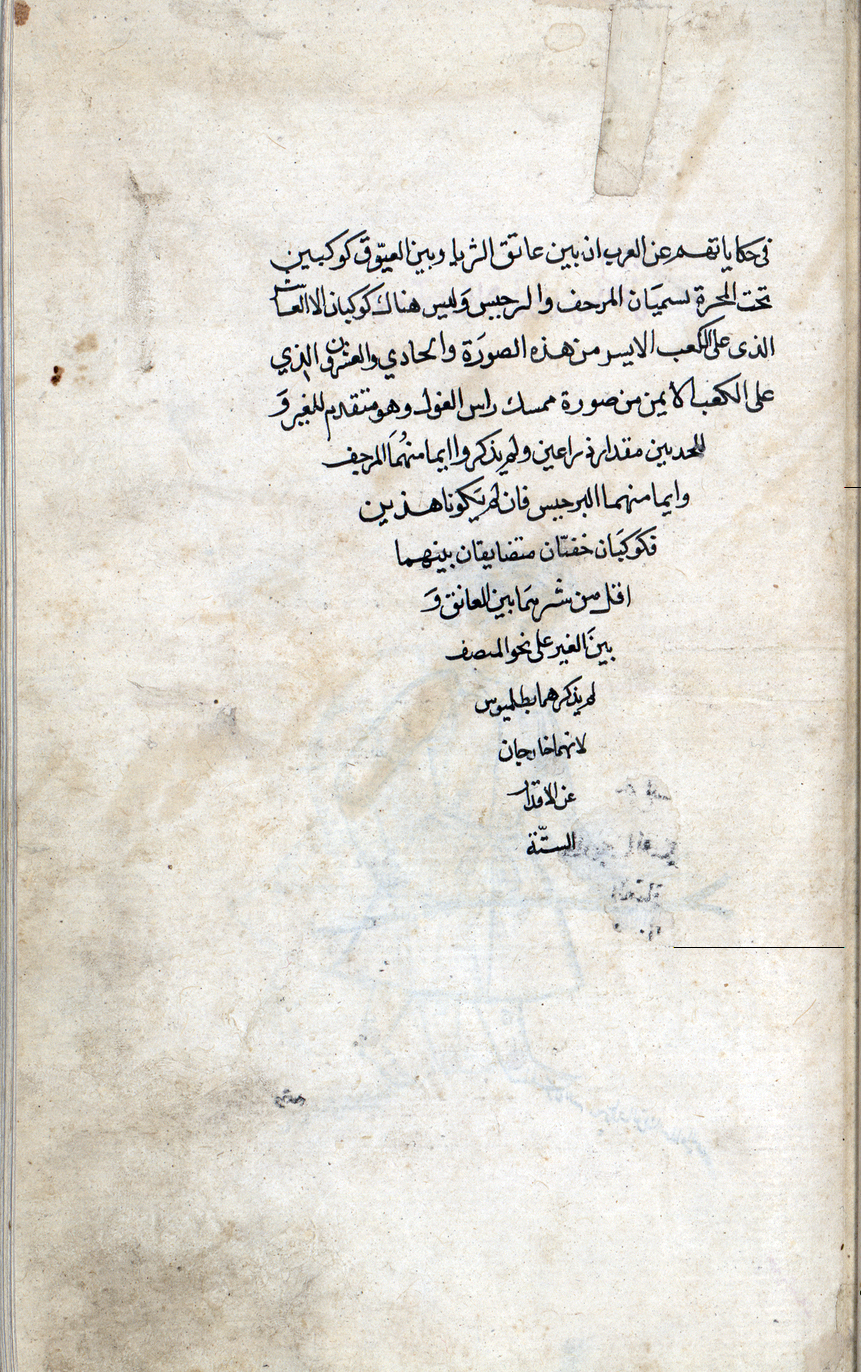 في حكاياتهم عن العرب ان بين عاتق الثريا وبين العيّوق كوكبين
تحت المجرة يسميان المرجف والبرجيس وليس هناك كوكبان الا العاشر
الذى على الكعب الايسر من هذه الصورة والحادي والعشرون الذي
على الكعب الايمن من صورة ممسك راس الغول وهو متقدم للغير و
للحد بين مقدار ذراعين ولم يذكروا ايما منهما المرجف
وايما منهما البرجيس فان لم يكونا هذين
فكوكبان خفيّان متضايقان بينهما
اقل من شبر هما بين العاتق و
بين الغير على نحو المنصف
لم يذكرهما بطلميوس
لانهما خارجان
عن الاقدار
الستّة